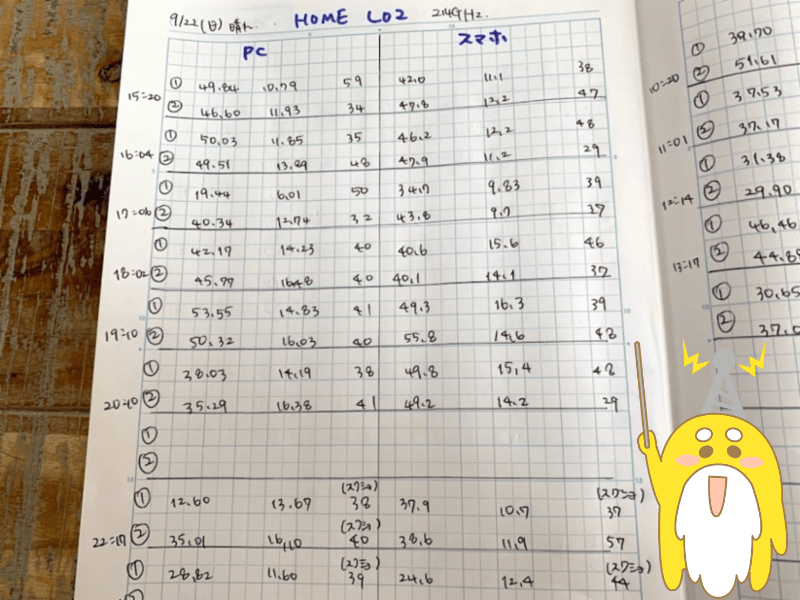 9/22(日) 晴れ HOME L02 2.4GHz.
PC スマホ
15:20 ① 49.84 10.79 59 42.0 11.1 38
② 46.60 11.93 34 47.8 12.2 47
16:04 ① 50.03 11.85 35 46.2 12.2 48
② 49.51 13.89 48 47.9 11.2 29
17:06 ① 19.44 6.01 50 34.7 9.83 39
② 40.34 12.74 32 43.8 9.7 37
18:02 ① 42.17 14.23 40 40.6 15.6 46
② 45.77 16.48 40 40.1 14.1 37
19:10 ① 53.55 14.83 41 49.3 16.3 39
② 50.32 16.03 40 55.8 14.6 48
20:10 ① 38.03 14.19 38 49.8 15.4 48
② 35.29 16.38 41 49.2 14.2 29
①
②
(スクショ) (スクショ)
22:17 ① 12.60 13.67 38 37.9 10.7 37
(スクショ)
② 35.01 16.10 40 38.6 11.9 57
(スクショ) (スクショ)
① 28.82 11.60 39 24.6 12.4 44
②
10:20 ① 39.70
② 51.61
11:01 ① 37.53
② 37.17
12:14 ① 31.38
② 29.90
13:17 ① 46.46
② 44.85
① 30.65
② 37.0